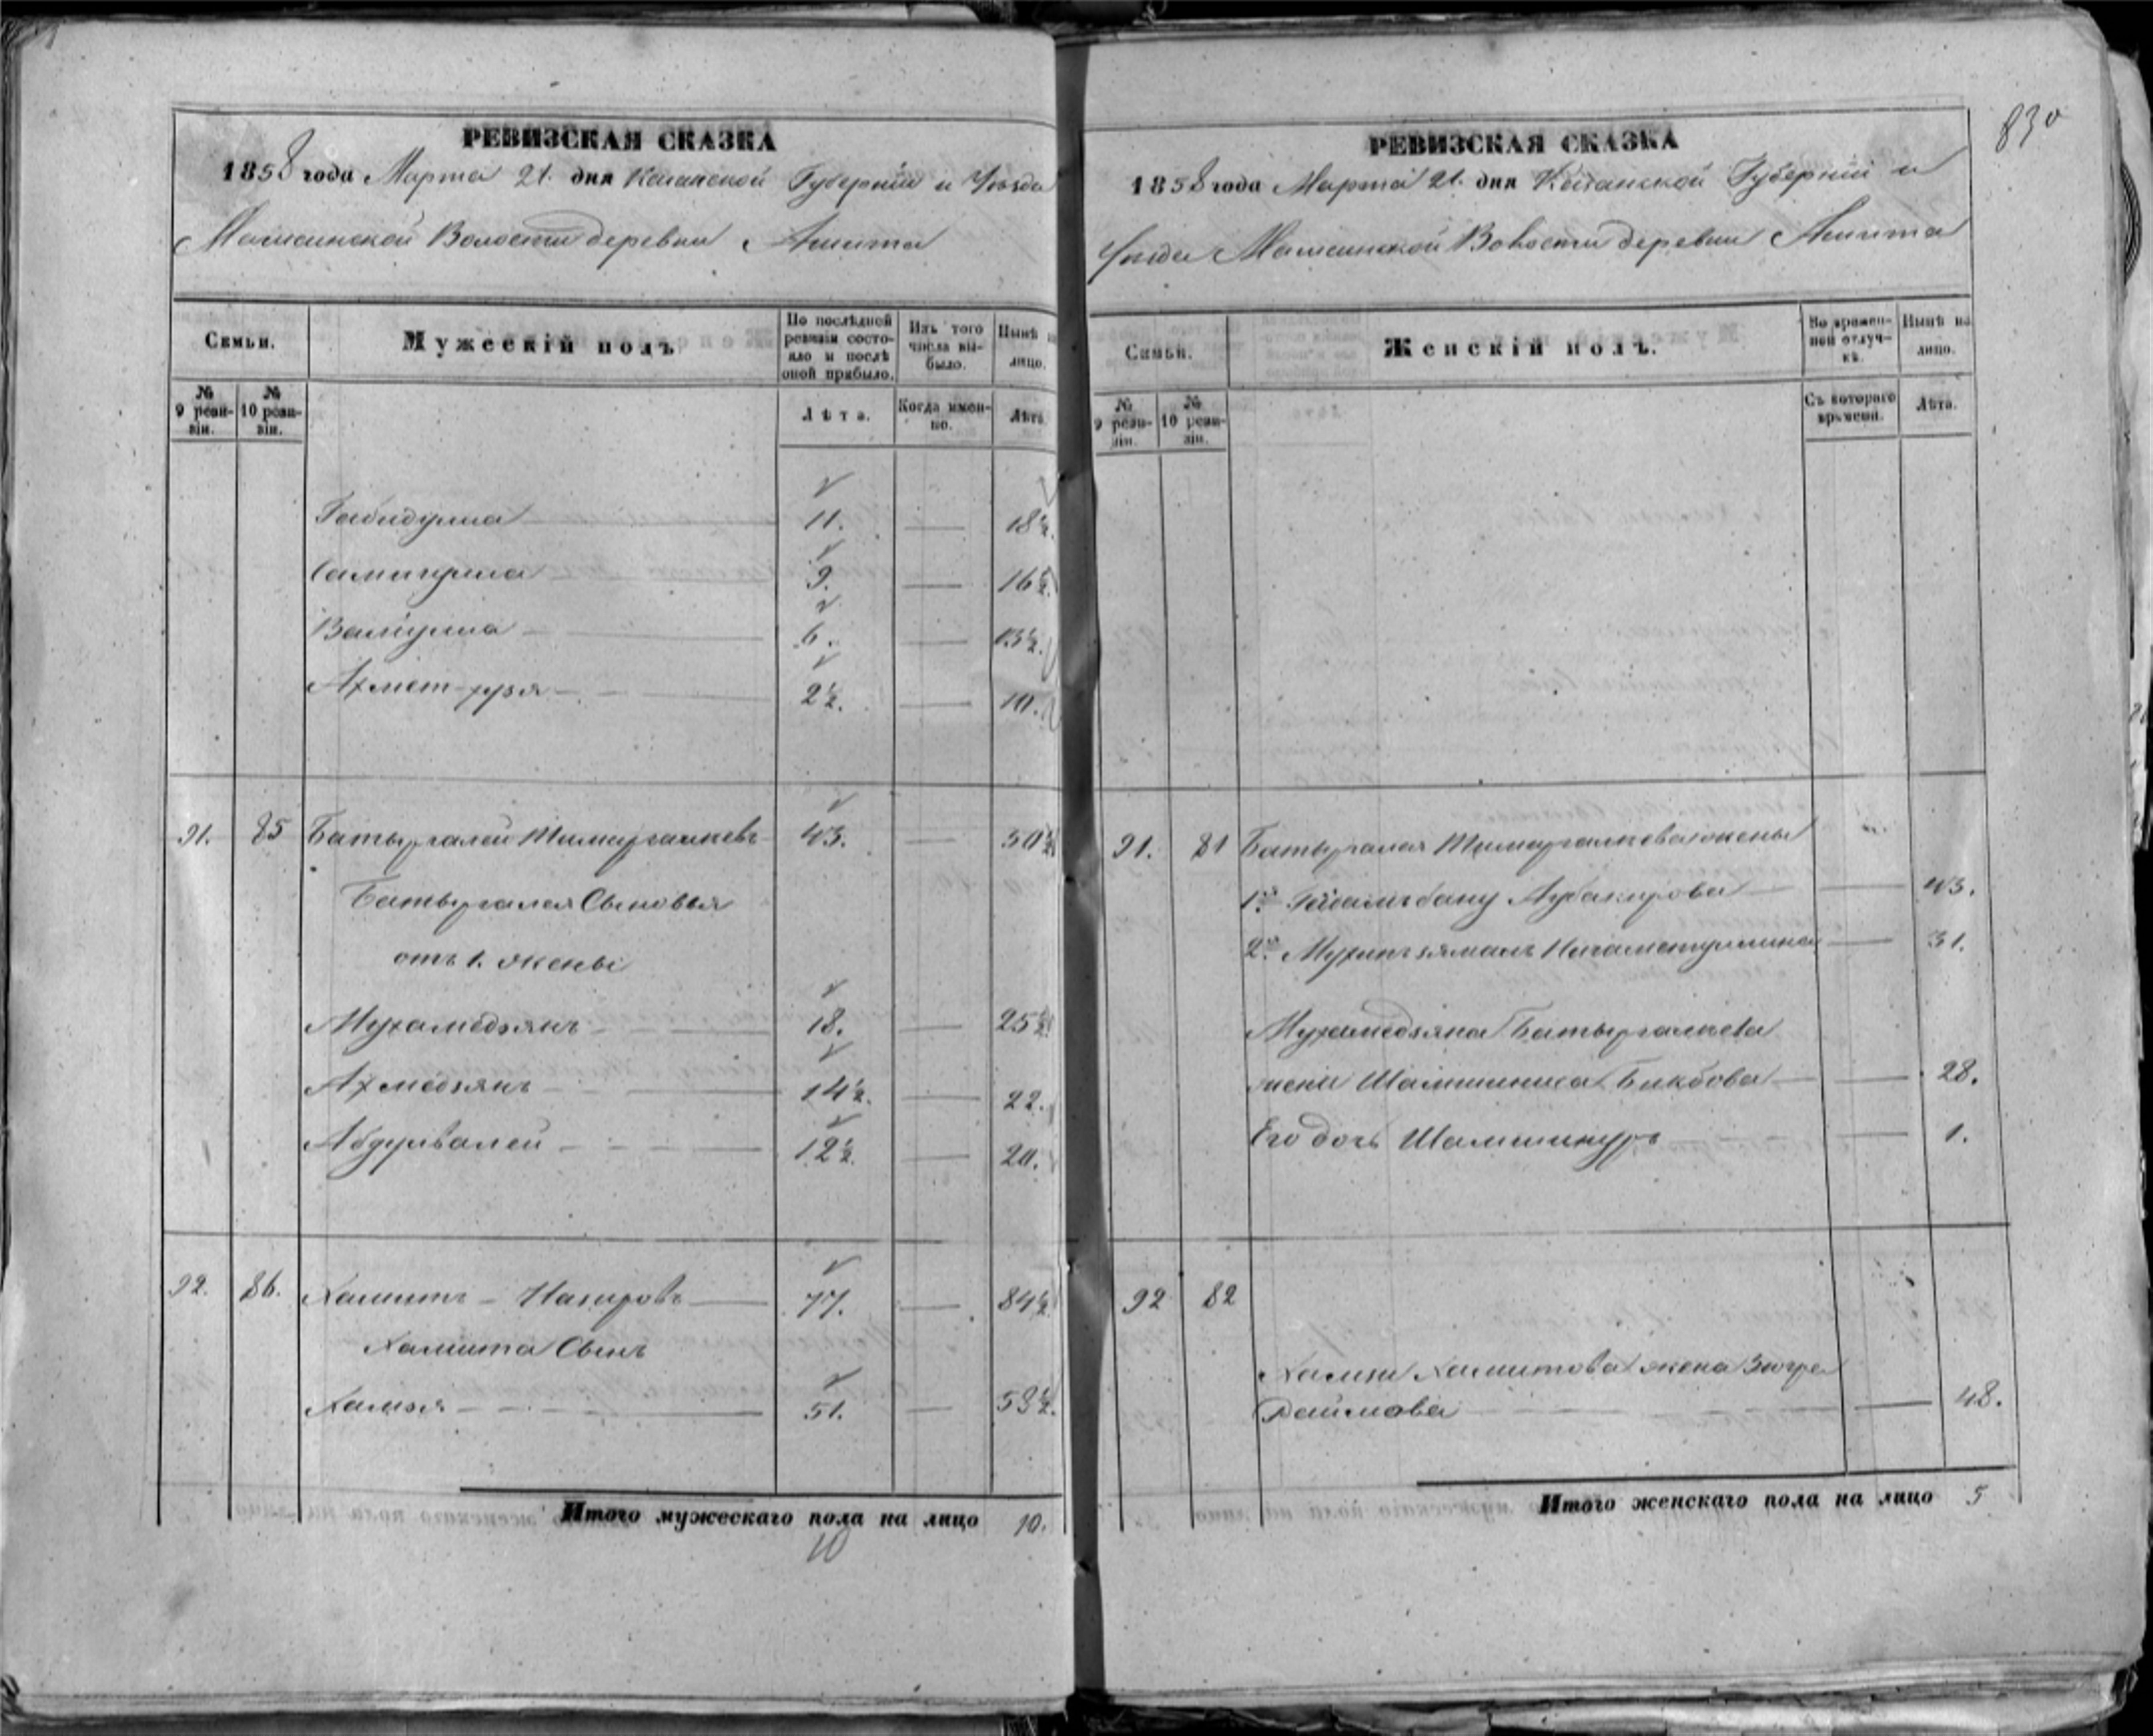 РЕВИЗСКАЯ СКАЗКА
1858 года Марта 21. дня Казанской Губернии и Уезда
Машинской Волости деревни Ашита
Семьи.
Мужескій полъ
По послѣдней ревизіи состояло и послѣ оной прибыло.
Изъ того числа выбыло.
Нынѣ на лицо.
№ 9 ревизіи.
№ 10 ревизіи.
Лѣта.
Когда именно.
Лѣта.
Габидулла 11. 18½.
Самигулла 9. 16½.
Валиулла 6. 13½.
Ахмет-хузя 2½. 10.
91. 85 Батыргалей Тимиргалиевъ 43. 50½
Батыргалея Сыновья
отъ 1. жены
Мухамедзянъ 18. 25½
Ахмедзянъ 14½. 22.
Абдулвалей 12½. 20.
92. 86. Хамитъ Назировъ 77. 84½
Хамита Сынъ
Хамзя 51. 58½.
Итого мужескаго пола на лицо 10.
10
830
РЕВИЗСКАЯ СКАЗКА
1858 года Марта 21. дня Казанской Губерніи и
Уезда Машинской Волости деревни Ашита
Семьи.
Женскій полъ.
Во временной отлучкѣ.
Нынѣ на лицо.
№ 9 ревизіи.
№ 10 ревизіи.
Съ котораго времени.
Лѣта.
91. 81 Батыргалея Тимиргалиева жены
1.я Абубакирова 43.
2.я Нигаметуллина 31.
Мухамедзяна Батыргалиева
жена Бикбова 28.
Его дочь Шамсинуръ 1.
92 82
Хамзи Хамитова жена Зюгра
Раимова 48.
Итого женскаго пола на лицо 5